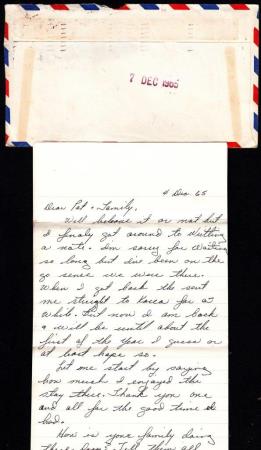 7 DEC 1965
4 Dec. 65
Dear Pat & Family,
Well beleave it or not but
I finaly got around to writting
a note. I'm sorry for waiting
so long but I've been on the
go sence we were there.
When I got back the sent
me straight to Korea for a
while. But now I am back
& will be until about the
first of the Year I guess or
at least hope so.
Let me start by saying
how much I enjoyed the
stay there. Thank you one
and all for the good time I
had.
How is your family doing
there, Tell them all